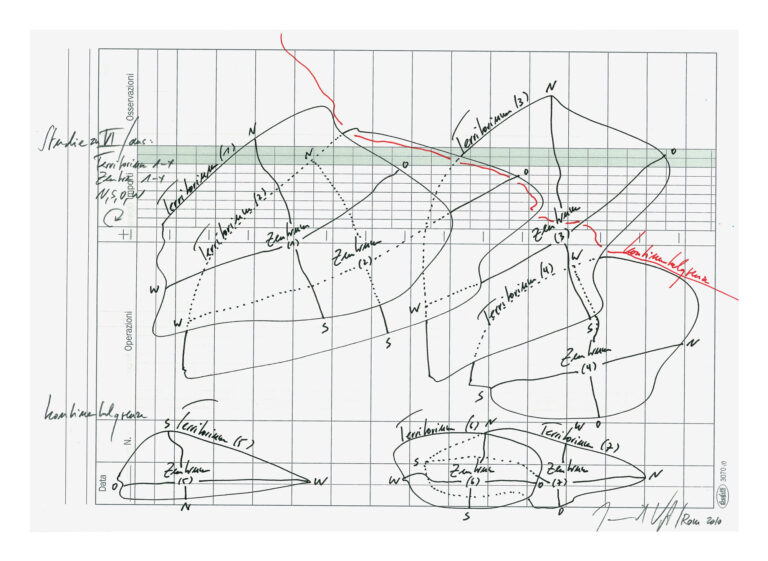 Osservazioni
Importi
Operazioni
N.
Data
Studie zu VI / aus:
Territorium 1-7
Zentrum 1-7
N, S, O, W
N
Territorium (1)
O
Zentrum
(1)
W
S
N
Territorium (2)
O
Zentrum
(2)
W
S
N
Territorium (3)
O
Zentrum
(3)
W
S
Kontinentalgrenze
W
Territorium (4)
N
Zentrum
(4)
S
O
Kontinentalgrenze
S
Territorium (5)
Zentrum
(5)
O
W
N
Territorium (6)
N
S
Zentrum
(6)
W
O
S
W
Territorium (7)
Zentrum
(7)
N
O
/Rom 2010
3070/0